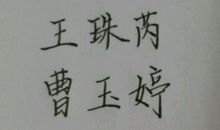 王珠芮
曹玉婷